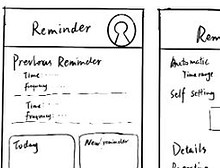 Reminder
Previous Reminder
Time:
Frequency
Time:
Frequency:
Today
New reminder
Rem
Automatic
Time range
Self Setting
Details